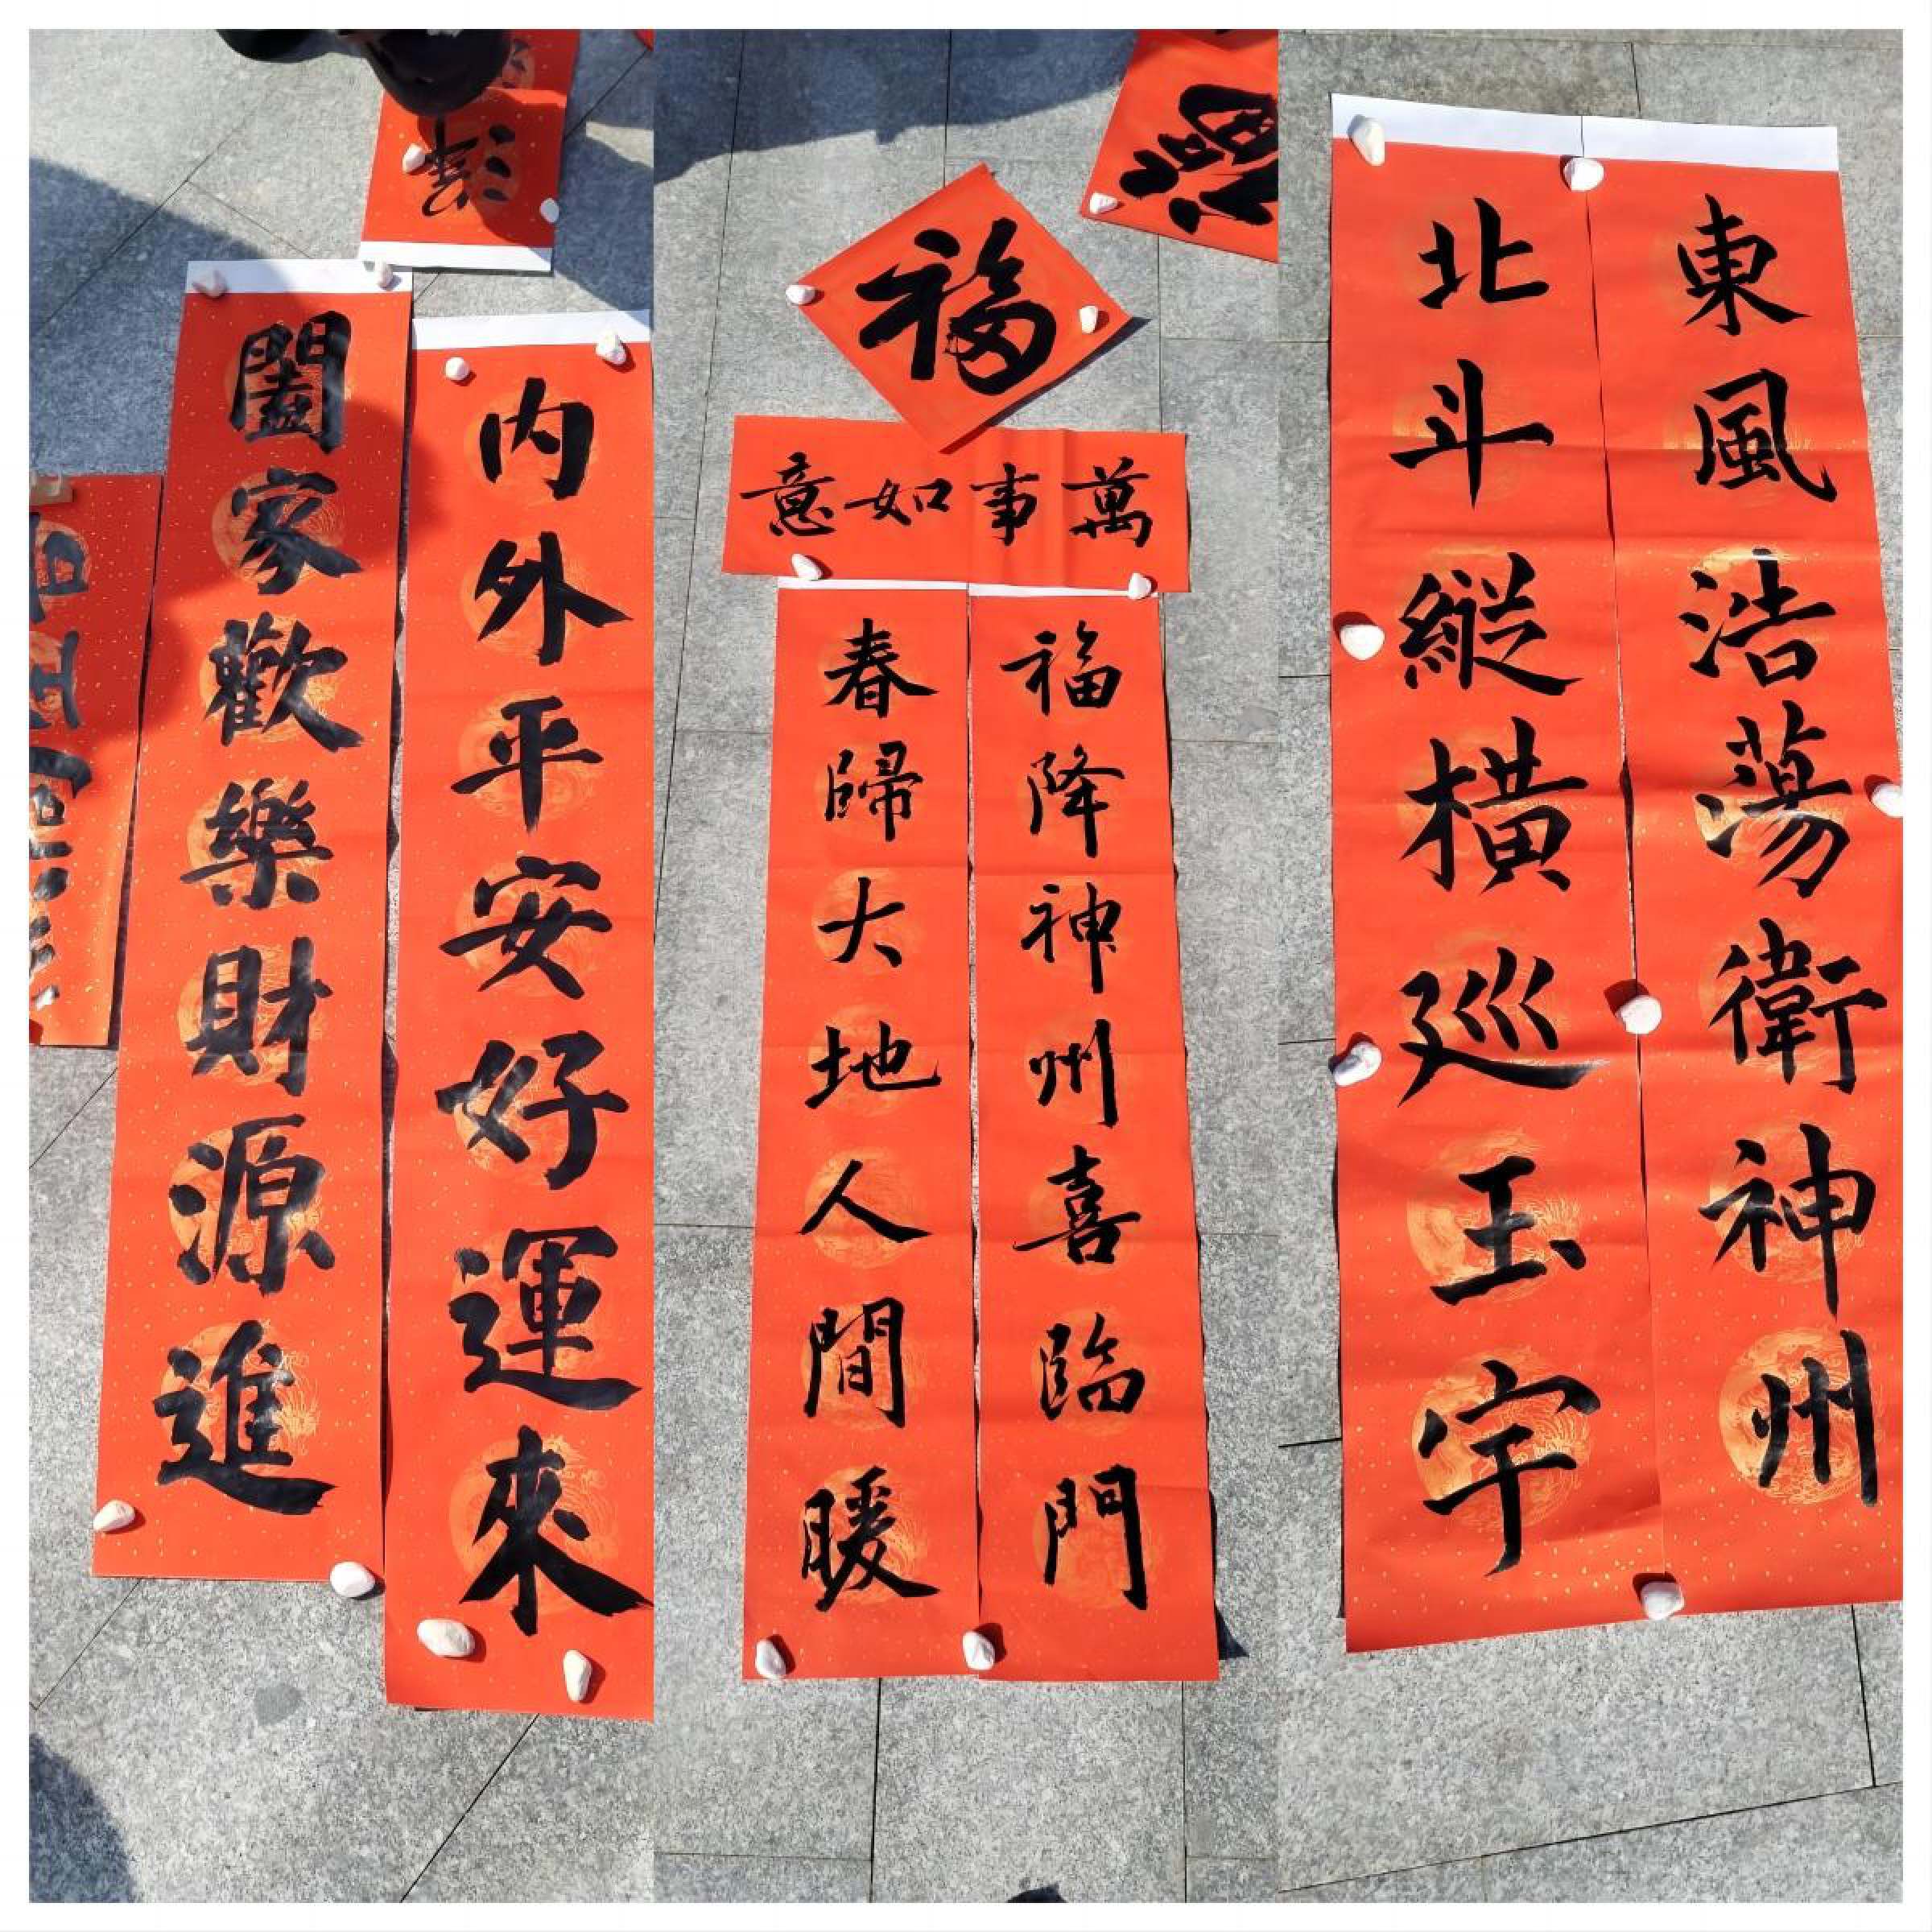 內外平安好運來
闔家歡樂財源進
福
萬事如意
福降神州喜臨門
春歸大地人間暖
東風浩蕩衛神州
北斗縱橫巡玉宇